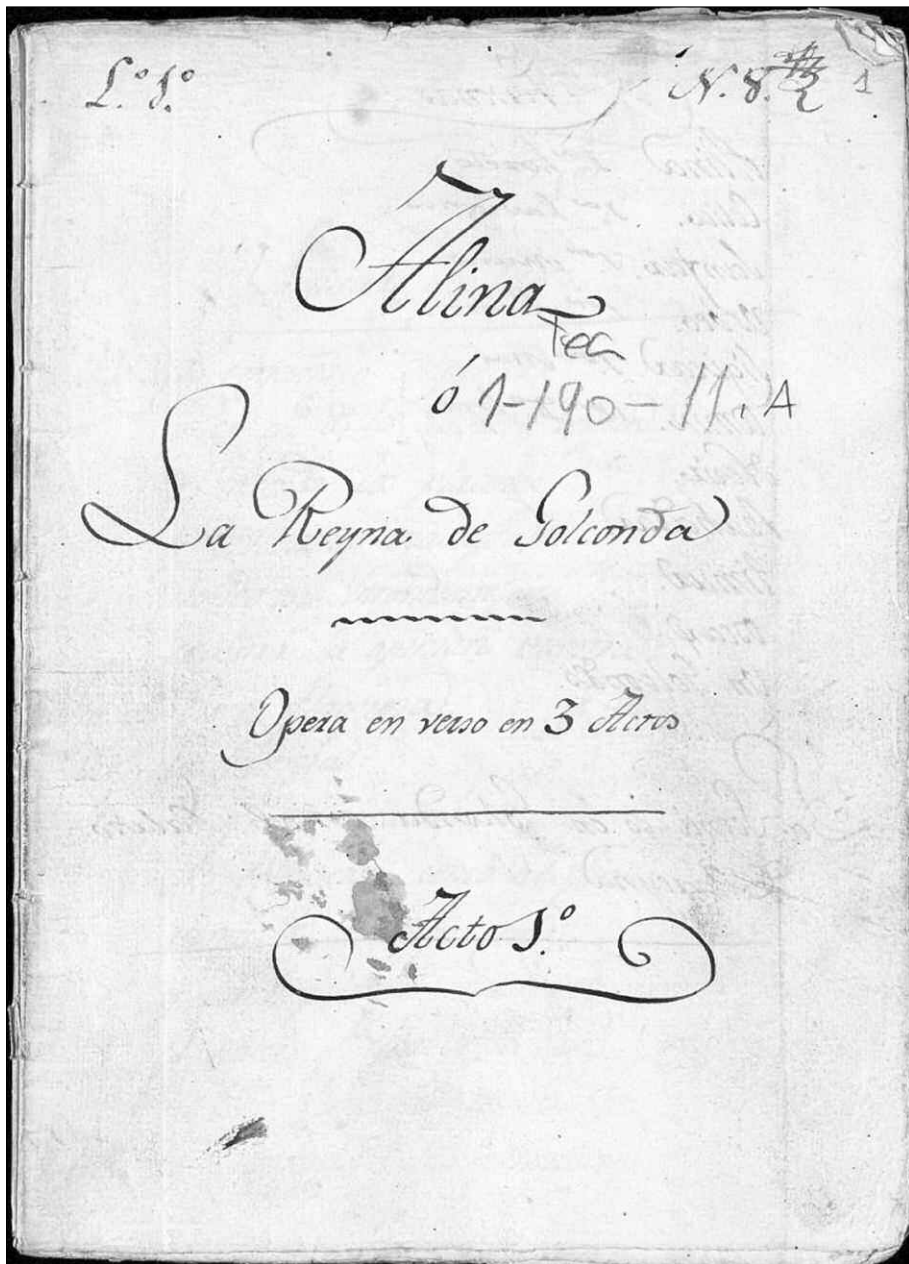 L.º 1.º
N. 8. 1
Alina
Tea
ó 1-190-11, A
La Reyna de Golconda
Opera en verso en 3 Actos
Acto 1.º